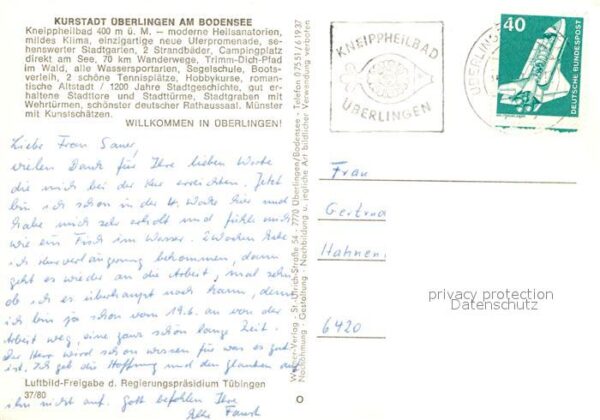 KURSTADT ÜBERLINGEN AM BODENSEE
Kneippheilbad 400 m ü. M. – moderne Heilsanatorien,
mildes Klima, einzigartige neue Uferpromenade, se-
henswerter Stadtgarten, 2 Strandbäder, Campingplatz
direkt am See, 70 km Wanderwege, Trimm-Dich-Pfad
im Wald, alle Wassersportarten, Segelschule, Boots-
verleih, 2 schöne Tennisplätze, Hobbykurse, roman-
tische Altstadt / 1200 Jahre Stadtgeschichte, gut er-
haltene Stadttore und Stadttürme, Stadtgraben mit
Wehrtürmen, schönster deutscher Rathaussaal. Münster
mit Kunstschätzen.
WILLKOMMEN IN ÜBERLINGEN!
Liebe Frau Sauer,
vielen Dank für Ihre lieben Worte
die mich bei der Kur erreichten. Jetzt
bin ich schon in der 4. Woche hier und
habe mich sehr erholt und fühle mich
wie ein Fisch im Wasser. 2 Wochen habe
ich Kurverlängerung bekommen, dann
geht es wieder an die Arbeit, mal sehn
ob ich es überhaupt noch kann, denn
ich bin ja schon vom 19.6. an von der
Arbeit weg, eine ganz schön lange Zeit.
Der Herr wird schon wissen für was es gut
ist. Ich geb die Hoffnung und den Glauben an
ihn nicht auf. Gott befohlen Ihre
Faust
Luftbild-Freigabe d. Regierungspräsidium Tübingen
37/80
Verlag - St.-Ulrich-Straße 54 - 7770 Überlingen/Bodensee - Telefon 07551/61937
Nachahmung - Gestaltung - Nachbildung u. jegliche Art bildlicher Verwendung verboten
KNEIPPHEILBAD
ÜBERLINGEN
ÜBERLINGEN
40
DEUTSCHE BUNDESPOST
Frau
Gertrud
Hahnen
6420
privacy protection
Datenschutz